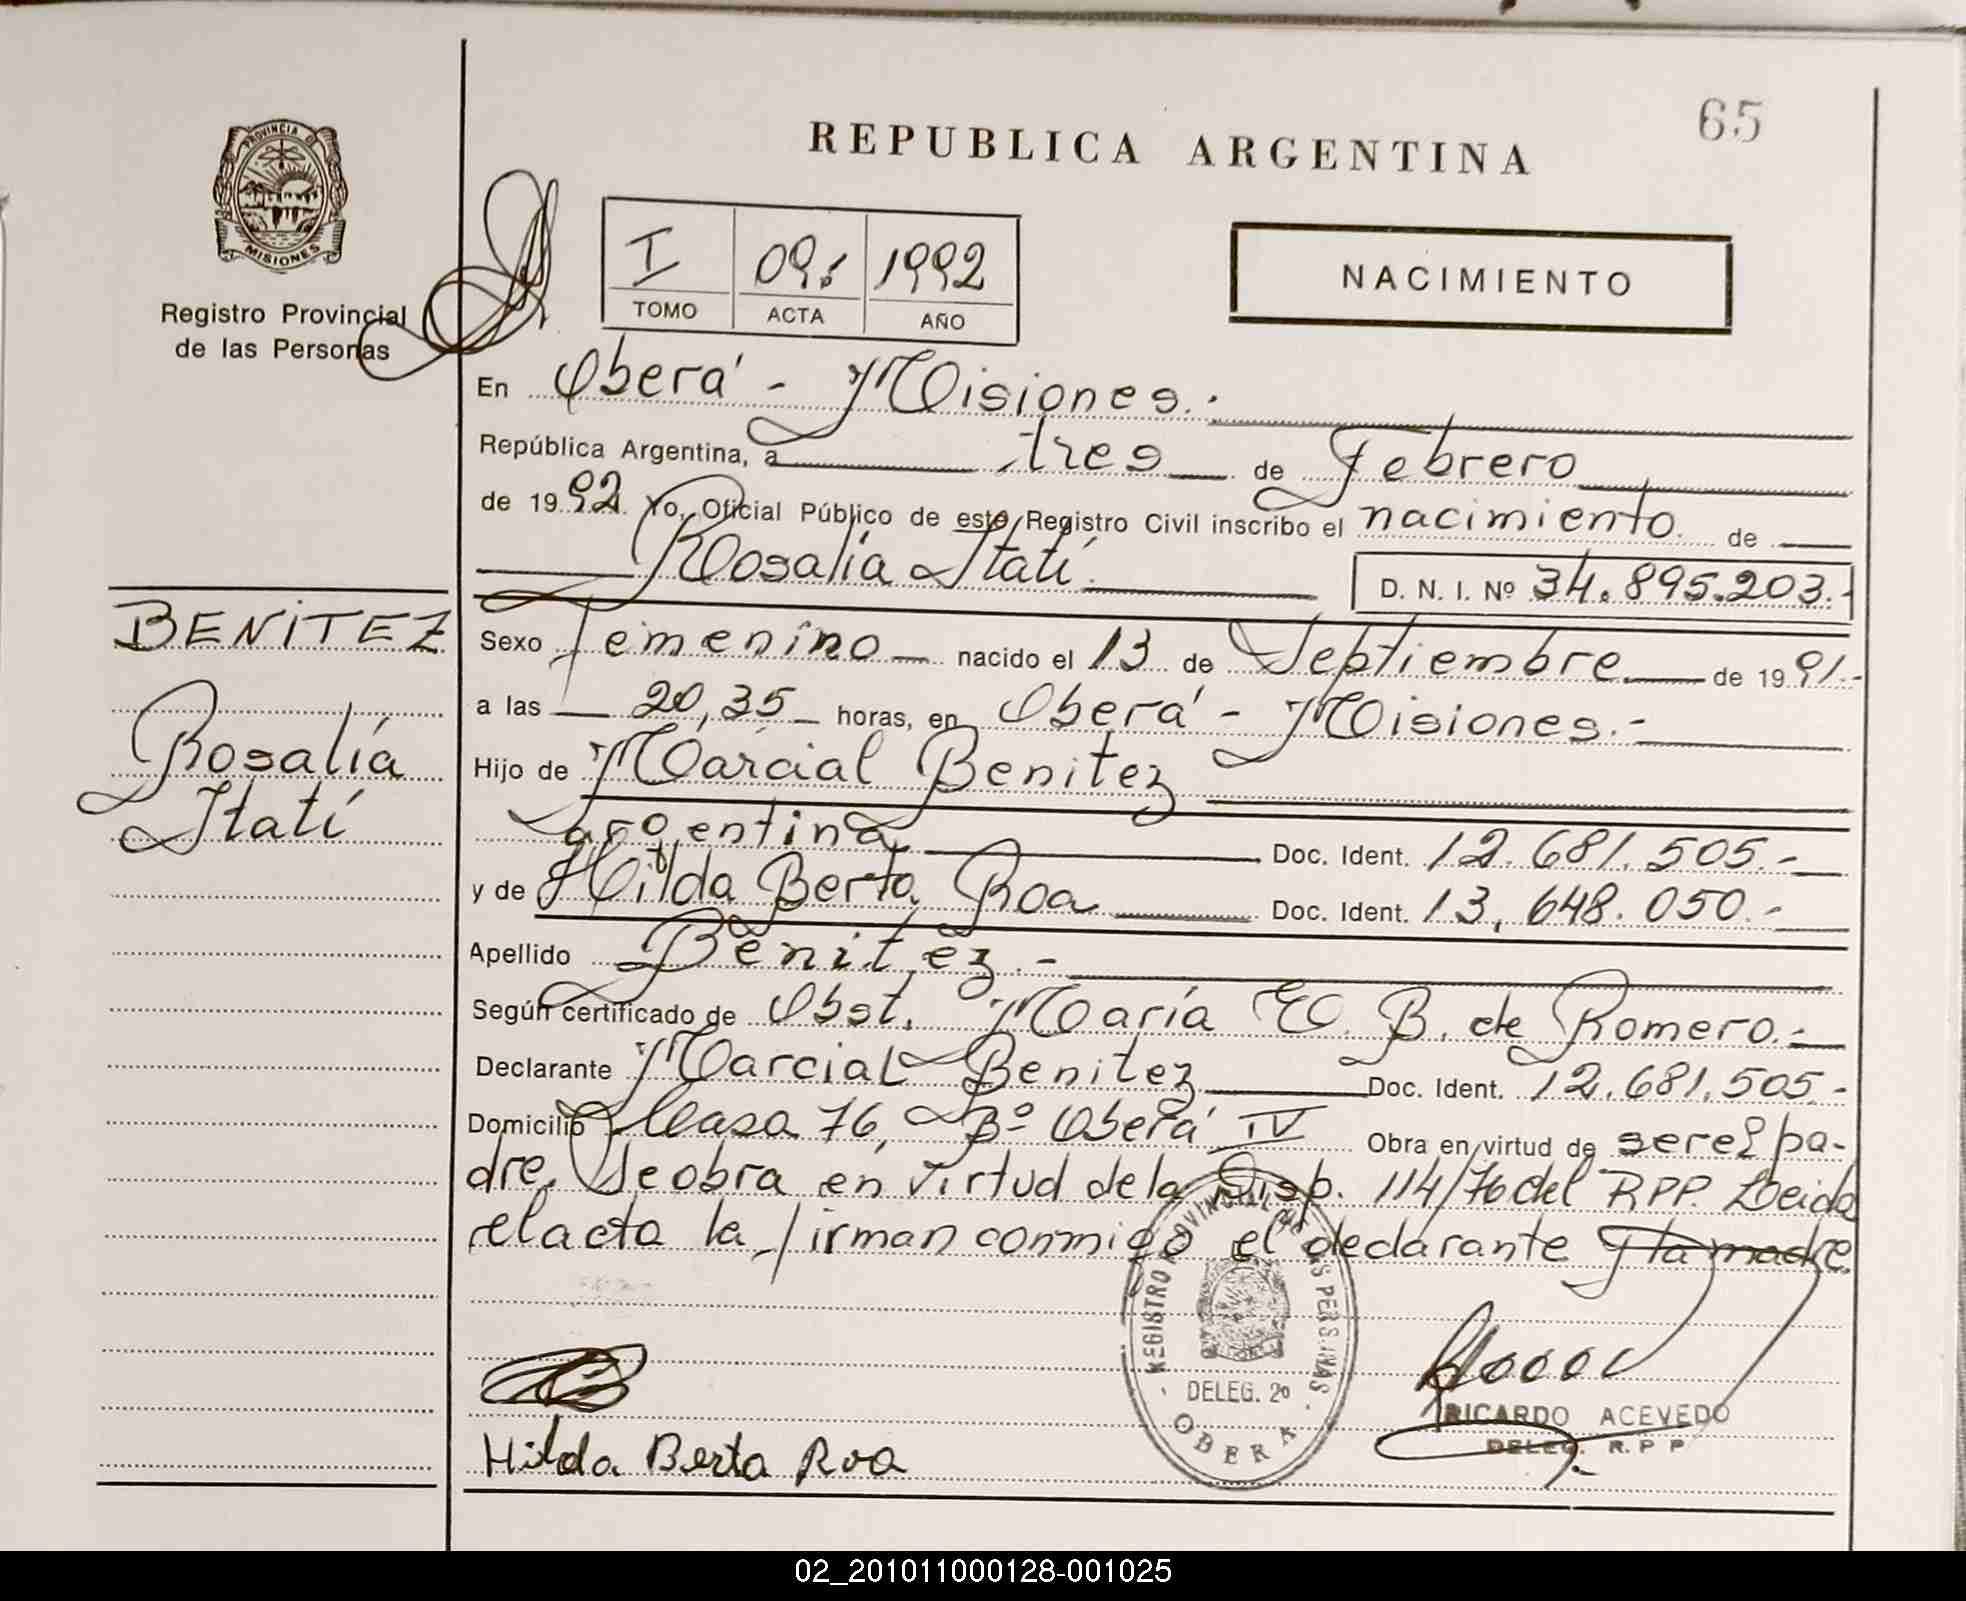 65
REPUBLICA ARGENTINA
PROVINCIA D
MISIONES
Registro Provincial
de las Personas
I 09. 1992
TOMO ACTA AÑO
NACIMIENTO
En Oberá - Misiones.-
República Argentina, a tres de Febrero
de 1992. Yo, Oficial Público de este Registro Civil inscribo el nacimiento de
Rosalía Itatí. D. N. I. Nº 34.895.203.-
BENITEZ
Rosalía
Itatí
Sexo Femenino nacido el 13 de Septiembre de 1991.-
a las 20,35 horas, en Oberá - Misiones.-
Hijo de Marcial Benitez
argentina Doc. Ident. 12.681.505.-
y de Hilda Berta Roa Doc. Ident. 13,648.050.-
Apellido Benitez.-
Según certificado de Obst. María E. B. de Romero.-
Declarante Marcial Benitez Doc. Ident. 12.681.505.-
Domicilio Casa 76, Bº Oberá IV Obra en virtud de ser el pa-
dre. Se obra en virtud de la Disp. 114/76 del RPP. Leida
el acta la firman conmigo el declarante y la madre.
REGISTRO PROVINCIAL DE LAS PERSONAS
DELEG. 2º
OBERA
RICARDO ACEVEDO
DELEG. R. P P
Hilda Berta Roa
02_201011000128-001025